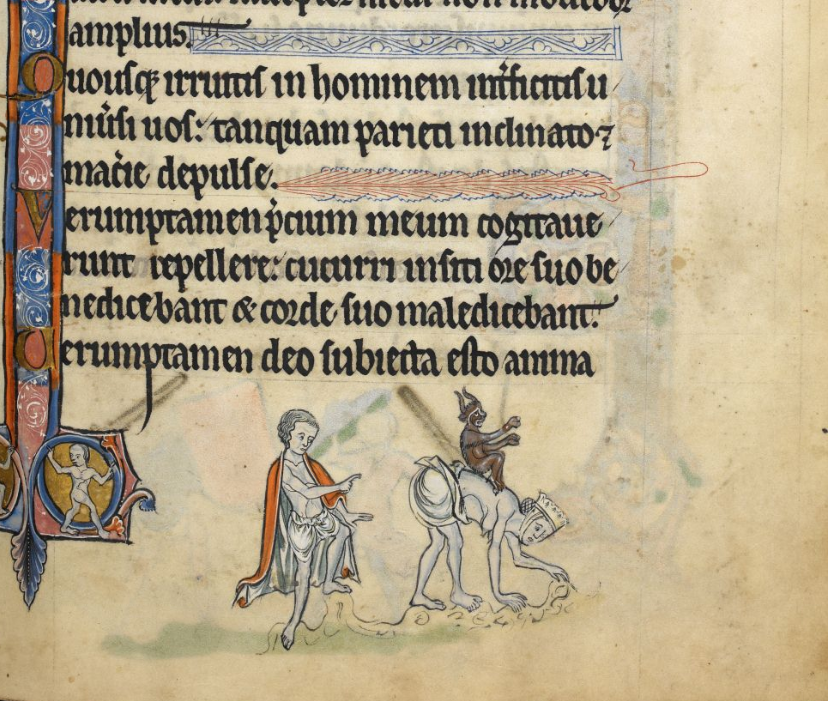 non mouebor
amplius.
Quousqꝫ irruitis in hominem int̾ficitis u
niu̾si uos: tanquam parieti inclinato ⁊
mac̾ie depulse.
Verumptamen p̾cium meum cogitaue
runt repellere: cucurri in siti ore suo be
nedicebant & corde suo maledicebant.
Uerumptamen deo subiecta esto anima